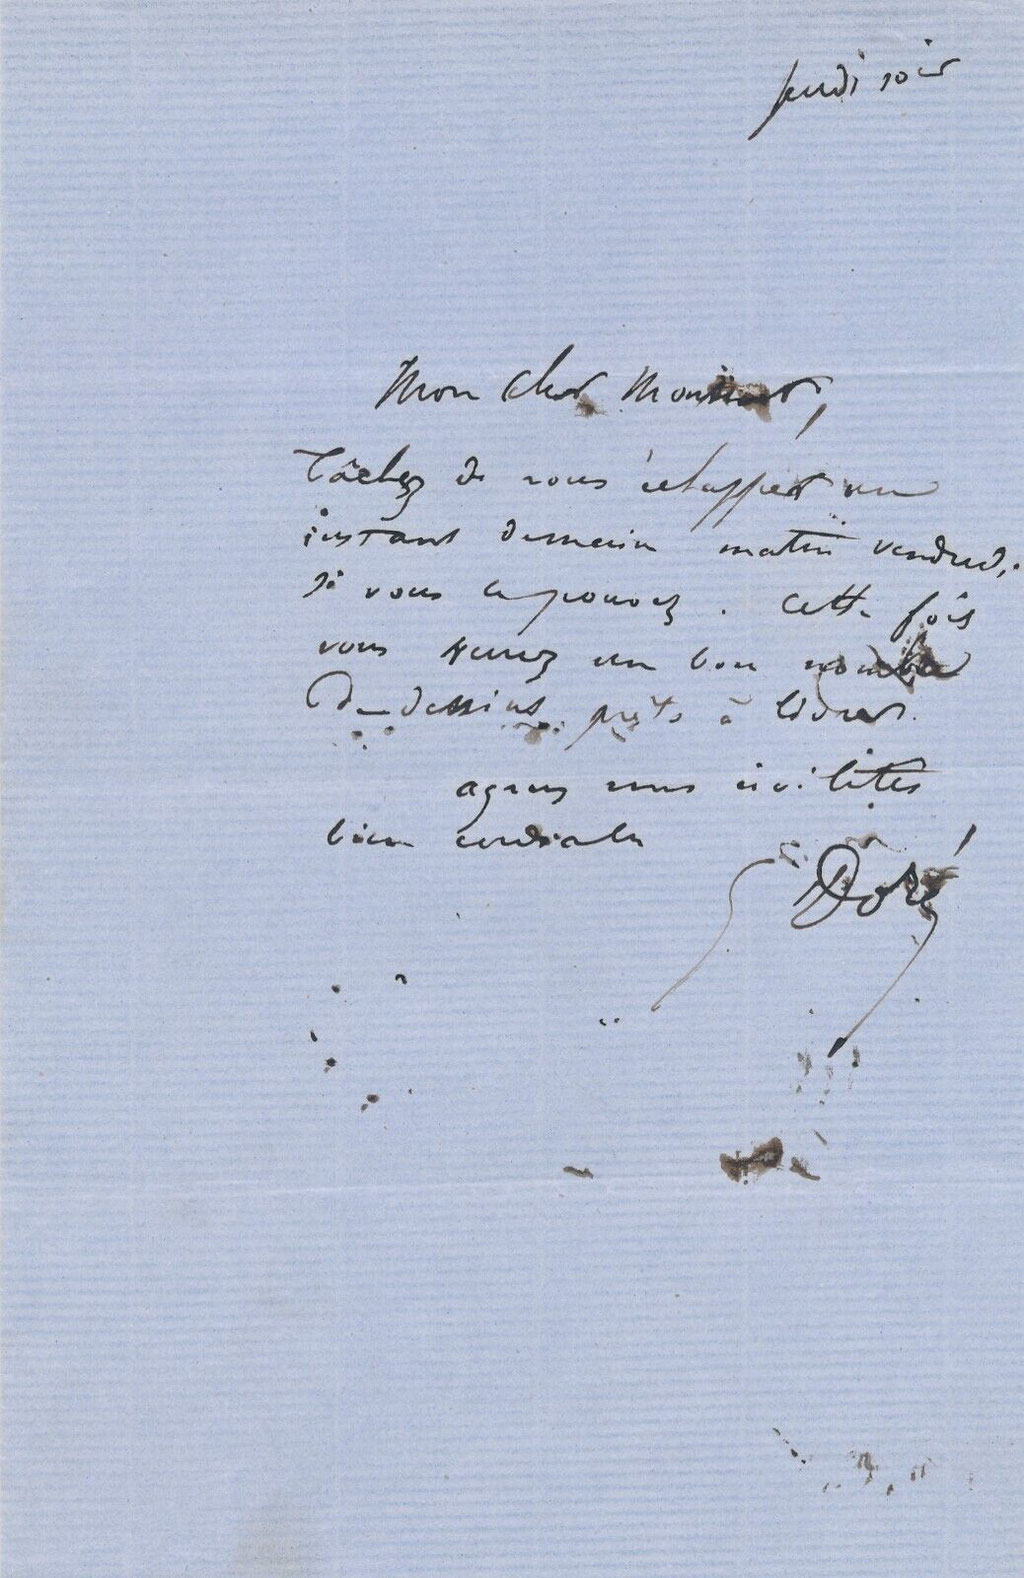 Jeudi soir
Mon cher
Tâchez de vous échapper un
instant demain matin vendredi
si vous le pouvez. Cette fois
vous aurez un bon nombre
de dessins prêts à livrer.
agréez mes civilités
bien cordiales
G Doré